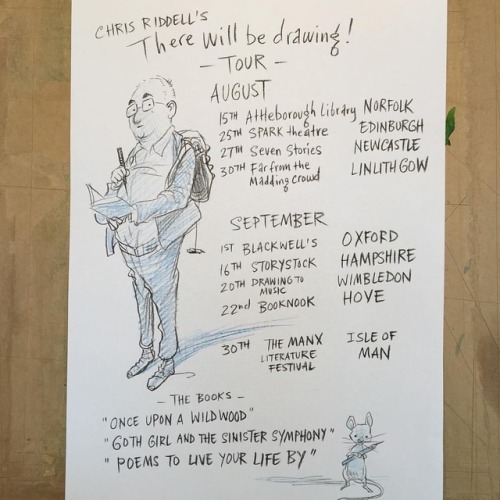 CHRIS RIDDELL'S
There will be drawing!
— TOUR —
AUGUST
15TH Attleborough Library NORFOLK
25TH SPARK theatre EDINBURGH
27TH Seven Stories NEWCASTLE
30TH Far from the Madding Crowd LINLITHGOW
SEPTEMBER
1ST BLACKWELL'S OXFORD
16TH STORYSTOCK HAMPSHIRE
20TH DRAWING TO MUSIC WIMBLEDON
22nd BOOKNOOK HOVE
30TH THE MANX LITERATURE FESTIVAL ISLE OF MAN
— THE BOOKS —
"ONCE UPON A WILD WOOD"
"GOTH GIRL AND THE SINISTER SYMPHONY"
"POEMS TO LIVE YOUR LIFE BY"